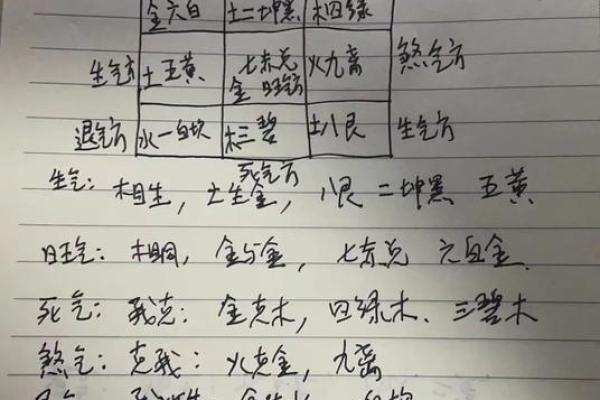 金六白 土二坤黑 木四绿
生气方 土五黄 七赤兑 火九离 煞气方
金 旺气方
退气方 水一白坎 木三碧 土八艮 生气方
死气方
生气：相生，土生金，八艮 二坤黑 五黄
旺气：相同，金与金，七赤兑 六白金
死气：我克：金克木，四绿木．三碧木
煞气：克我：火克金，九离